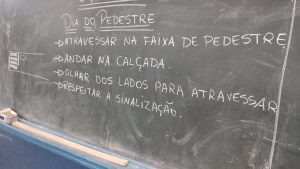 DIA DO PEDESTRE
→ATRAVESSAR NA FAIXA DE PEDESTRE
→ANDAR NA CALÇADA.
→OLHAR DOS LADOS PARA ATRAVESSAR
→RESPEITAR A SINALIZAÇÃO.